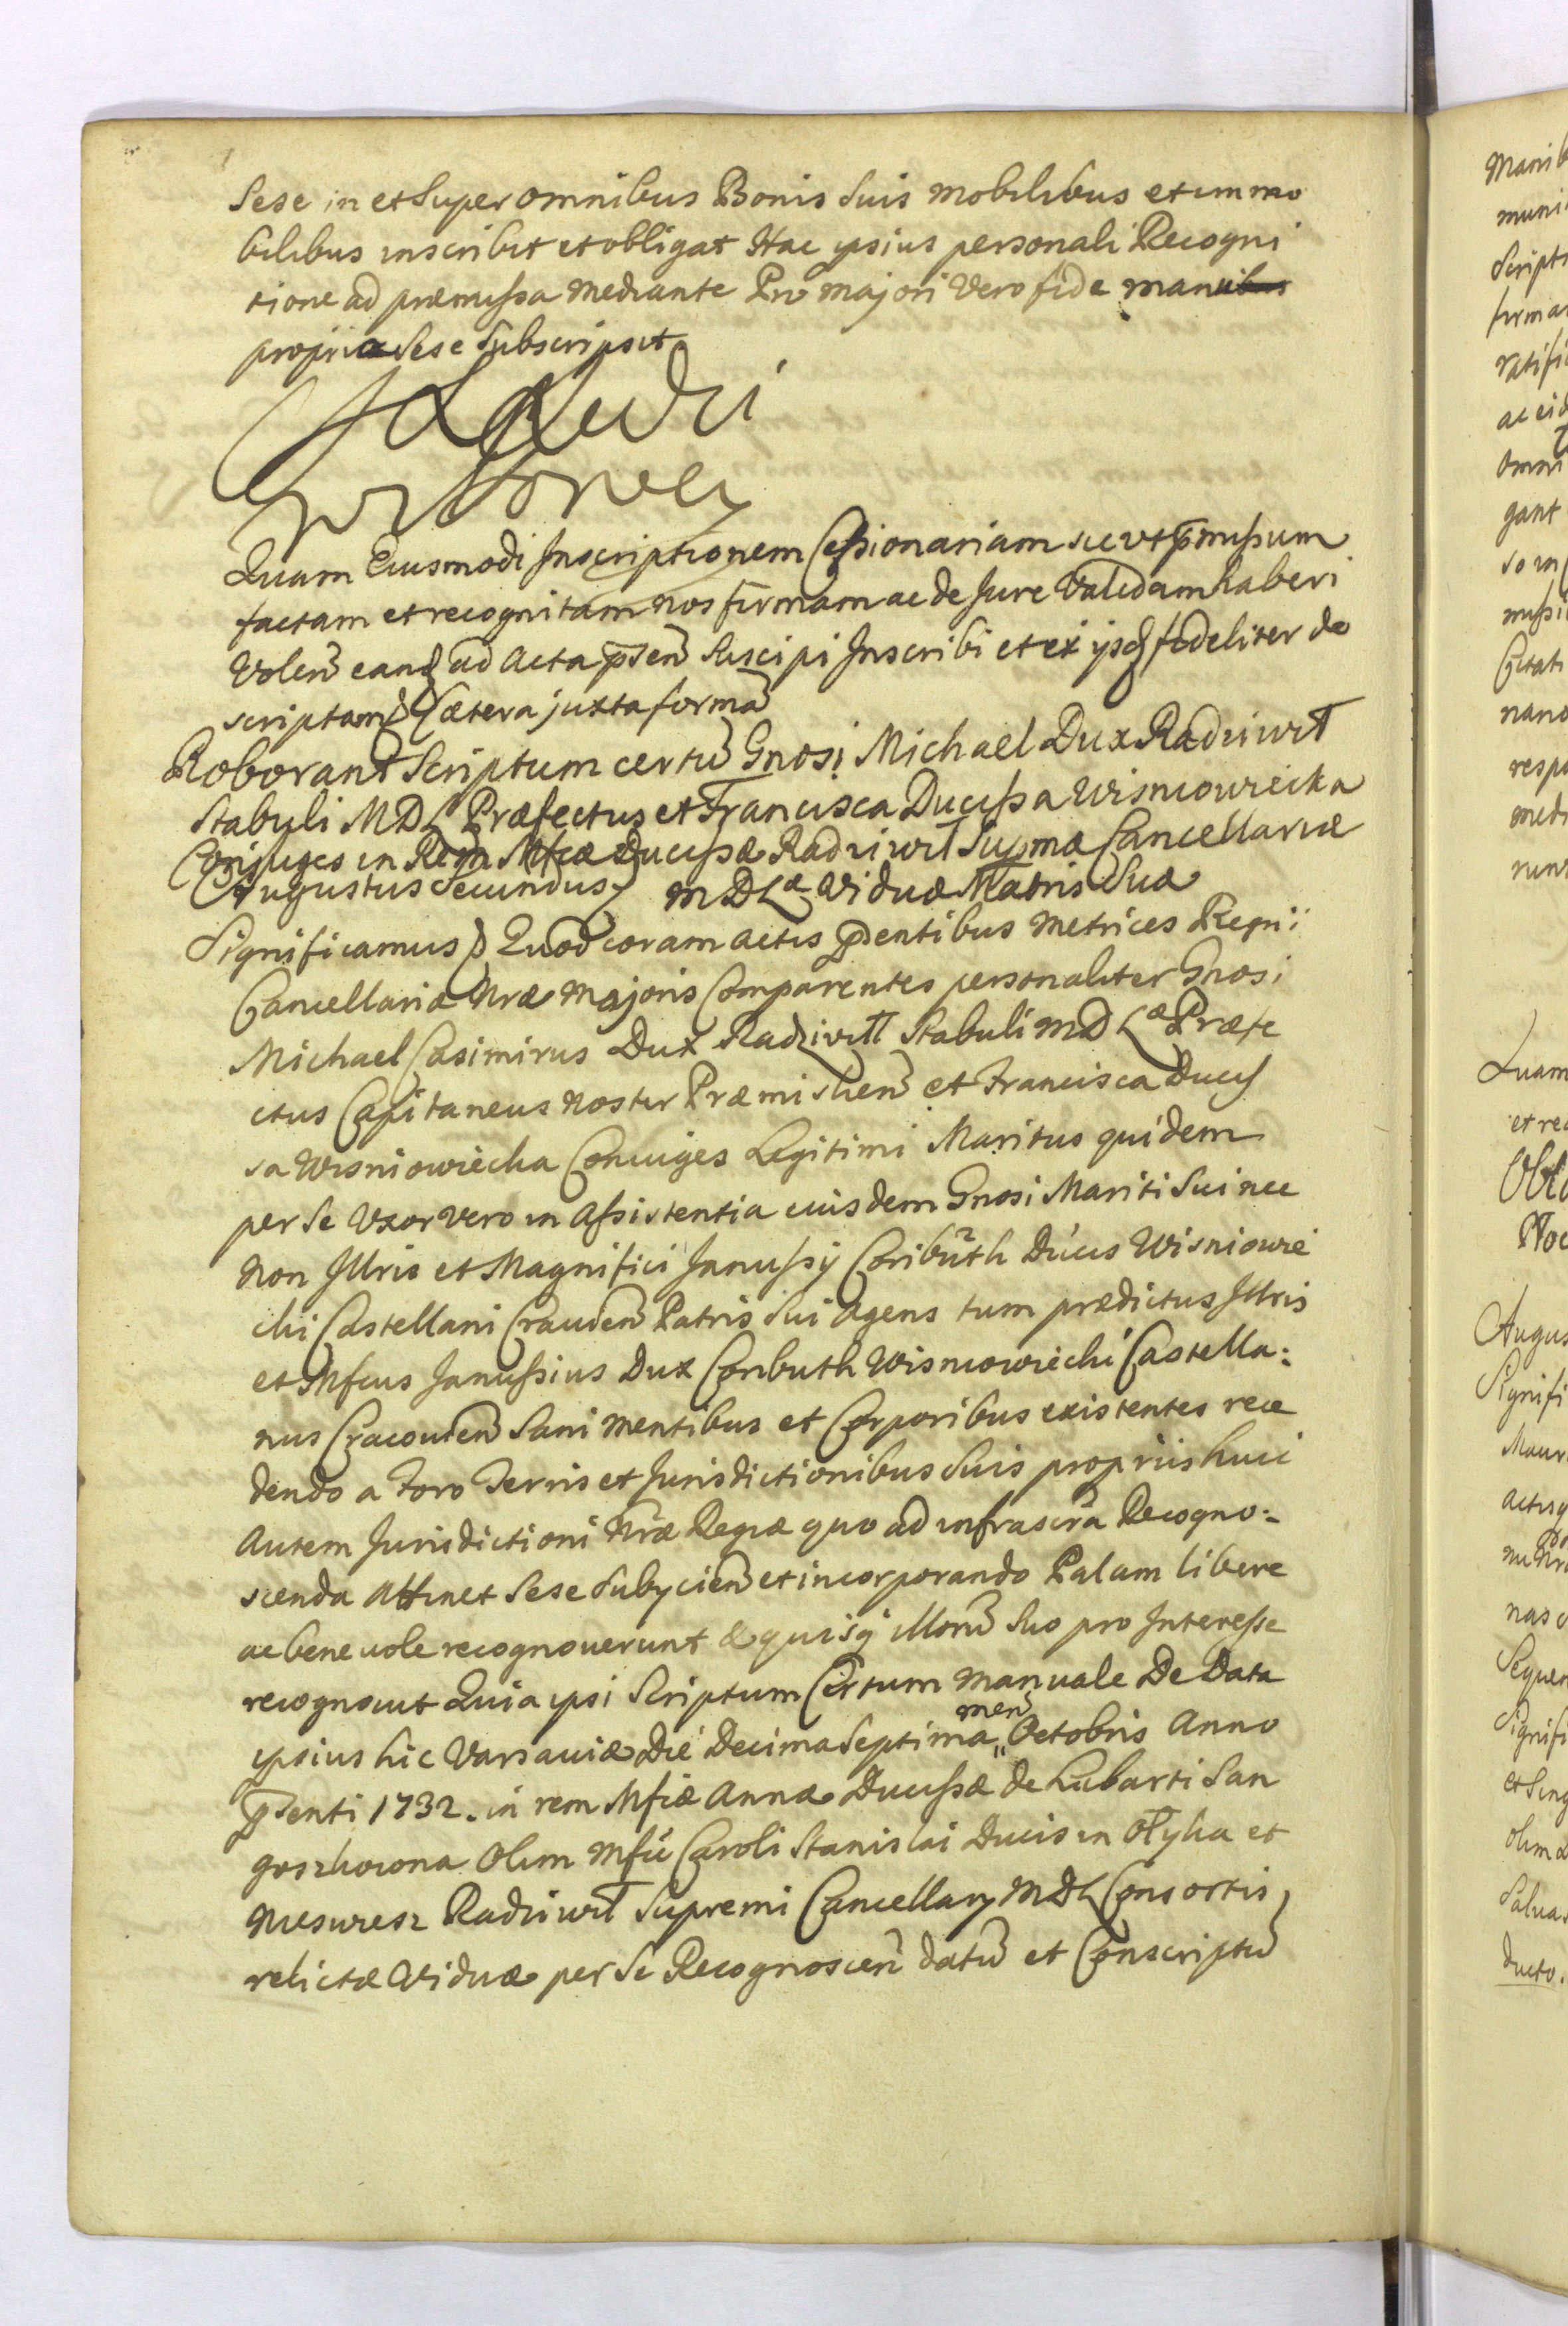 Sese in et Super omnibus Bonis Suis mobilibus et immo
bilibus inscribit et obligat Hac ipsius personali Recogni
tione ad præmissa mediante Pro majori Vero fide manu
propria Sese Subscripsit
Quam Eiusmodi Inscriptionem Cessionariam sicut p̄missum
factam et recognitam nos firmam ac de Jure Validam haberi
Volen̄ eand ad Acta p̄sen̄ Suscipi Inscribi et ex ijsd fideliter de
scriptam Cætera juxta formā
Roborant Scriptum certū Gnosi Michael Dux Radziwił
Stabuli MDL Præfectus et Francisca Ducissa Wisniowiecka
Conjuges in Rem Mfcæ Ducissæ Radziwił Supmæ Cancellariæ
Augustus Secundus MDLæ Viduæ Matris Suæ
Significamus Quod coram actis p̄sentibus Metrices Regni:
Cancellariæ Nræ Majoris Comparentes personaliter Gnosi
Michael Casimirus Dux Radziwiłł Stabuli MDLæ Præfe
ctus Capitaneus Noster Præmislien̄ et Francisca Ducis
sa Wisniowiecka Coniuges Legitimi Maritus quidem
per Se Uxor vero in Assistentia eiusdem Gnosi Mariti Sui nec
non Illris et Magnifici Janussij Coributh Ducis Wisniowie
cki Castellani Cracvien̄ Patris Sui Agens tum prædictus Illris
et Mfcus Janussius Dux Coributh Wisniowiecki Castella:
nus Cracovien̄ Sani Mentibus et Corporibus existentes rece
dendo a Foro Terris et Jurisdictionibus Suis propriis huic
Autem Jurisdictioni Nræ Regiæ quo ad infrascra Recogno:
scenda Attinet Sese Subijcien̄ et incorporando Palam libere
ac benevole recognoverunt & quisq illorū Suo pro Interesse
recognovit Quia ipsi Scriptum Certum Manuale De Data
ipsius hic Varsaviæ Die Decima Septima men̄ Octobris Anno
p̄senti 1732. in rem Mfcæ Annæ Ducissæ de Lubarti San
guszkowna Olim Mfci Caroli Stanislai Ducis in Ołyka et
Nieswiesz Radziwił Supremi Cancellarij MDL Consortis,
relictæ Viduæ per Se Recognoscen̄ datū et Conscriptū